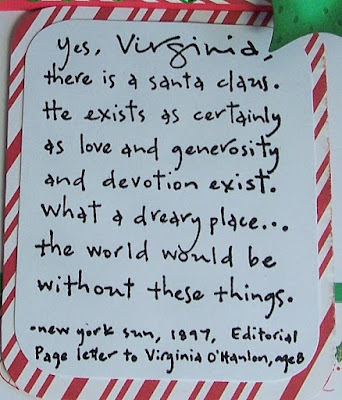 yes, Virginia,
there is a santa claus.
He exists as certainly
as love and generosity
and devotion exist.
What a dreary place...
the world would be
without these things.
•new york sun, 1897, Editorial
Page letter to Virginia O'Hanlon, age 8